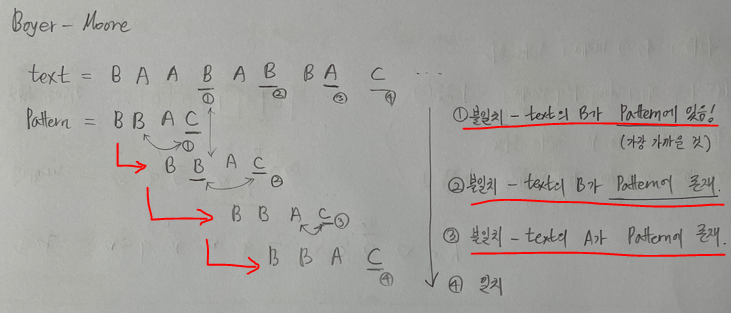 Boyer - Moore
text = B A A B A B B A C ...
① ② ③ ④
Pattern = B B A C
①
B B A C
②
B B A C ③
B B A C
④
① 불일치 - text의 B가 Pattern에 있음!
(가장 가까운 것)
② 불일치 - text의 B가 Pattern에 존재.
③ 불일치 - text의 A가 Pattern에 존재.
④ 일치